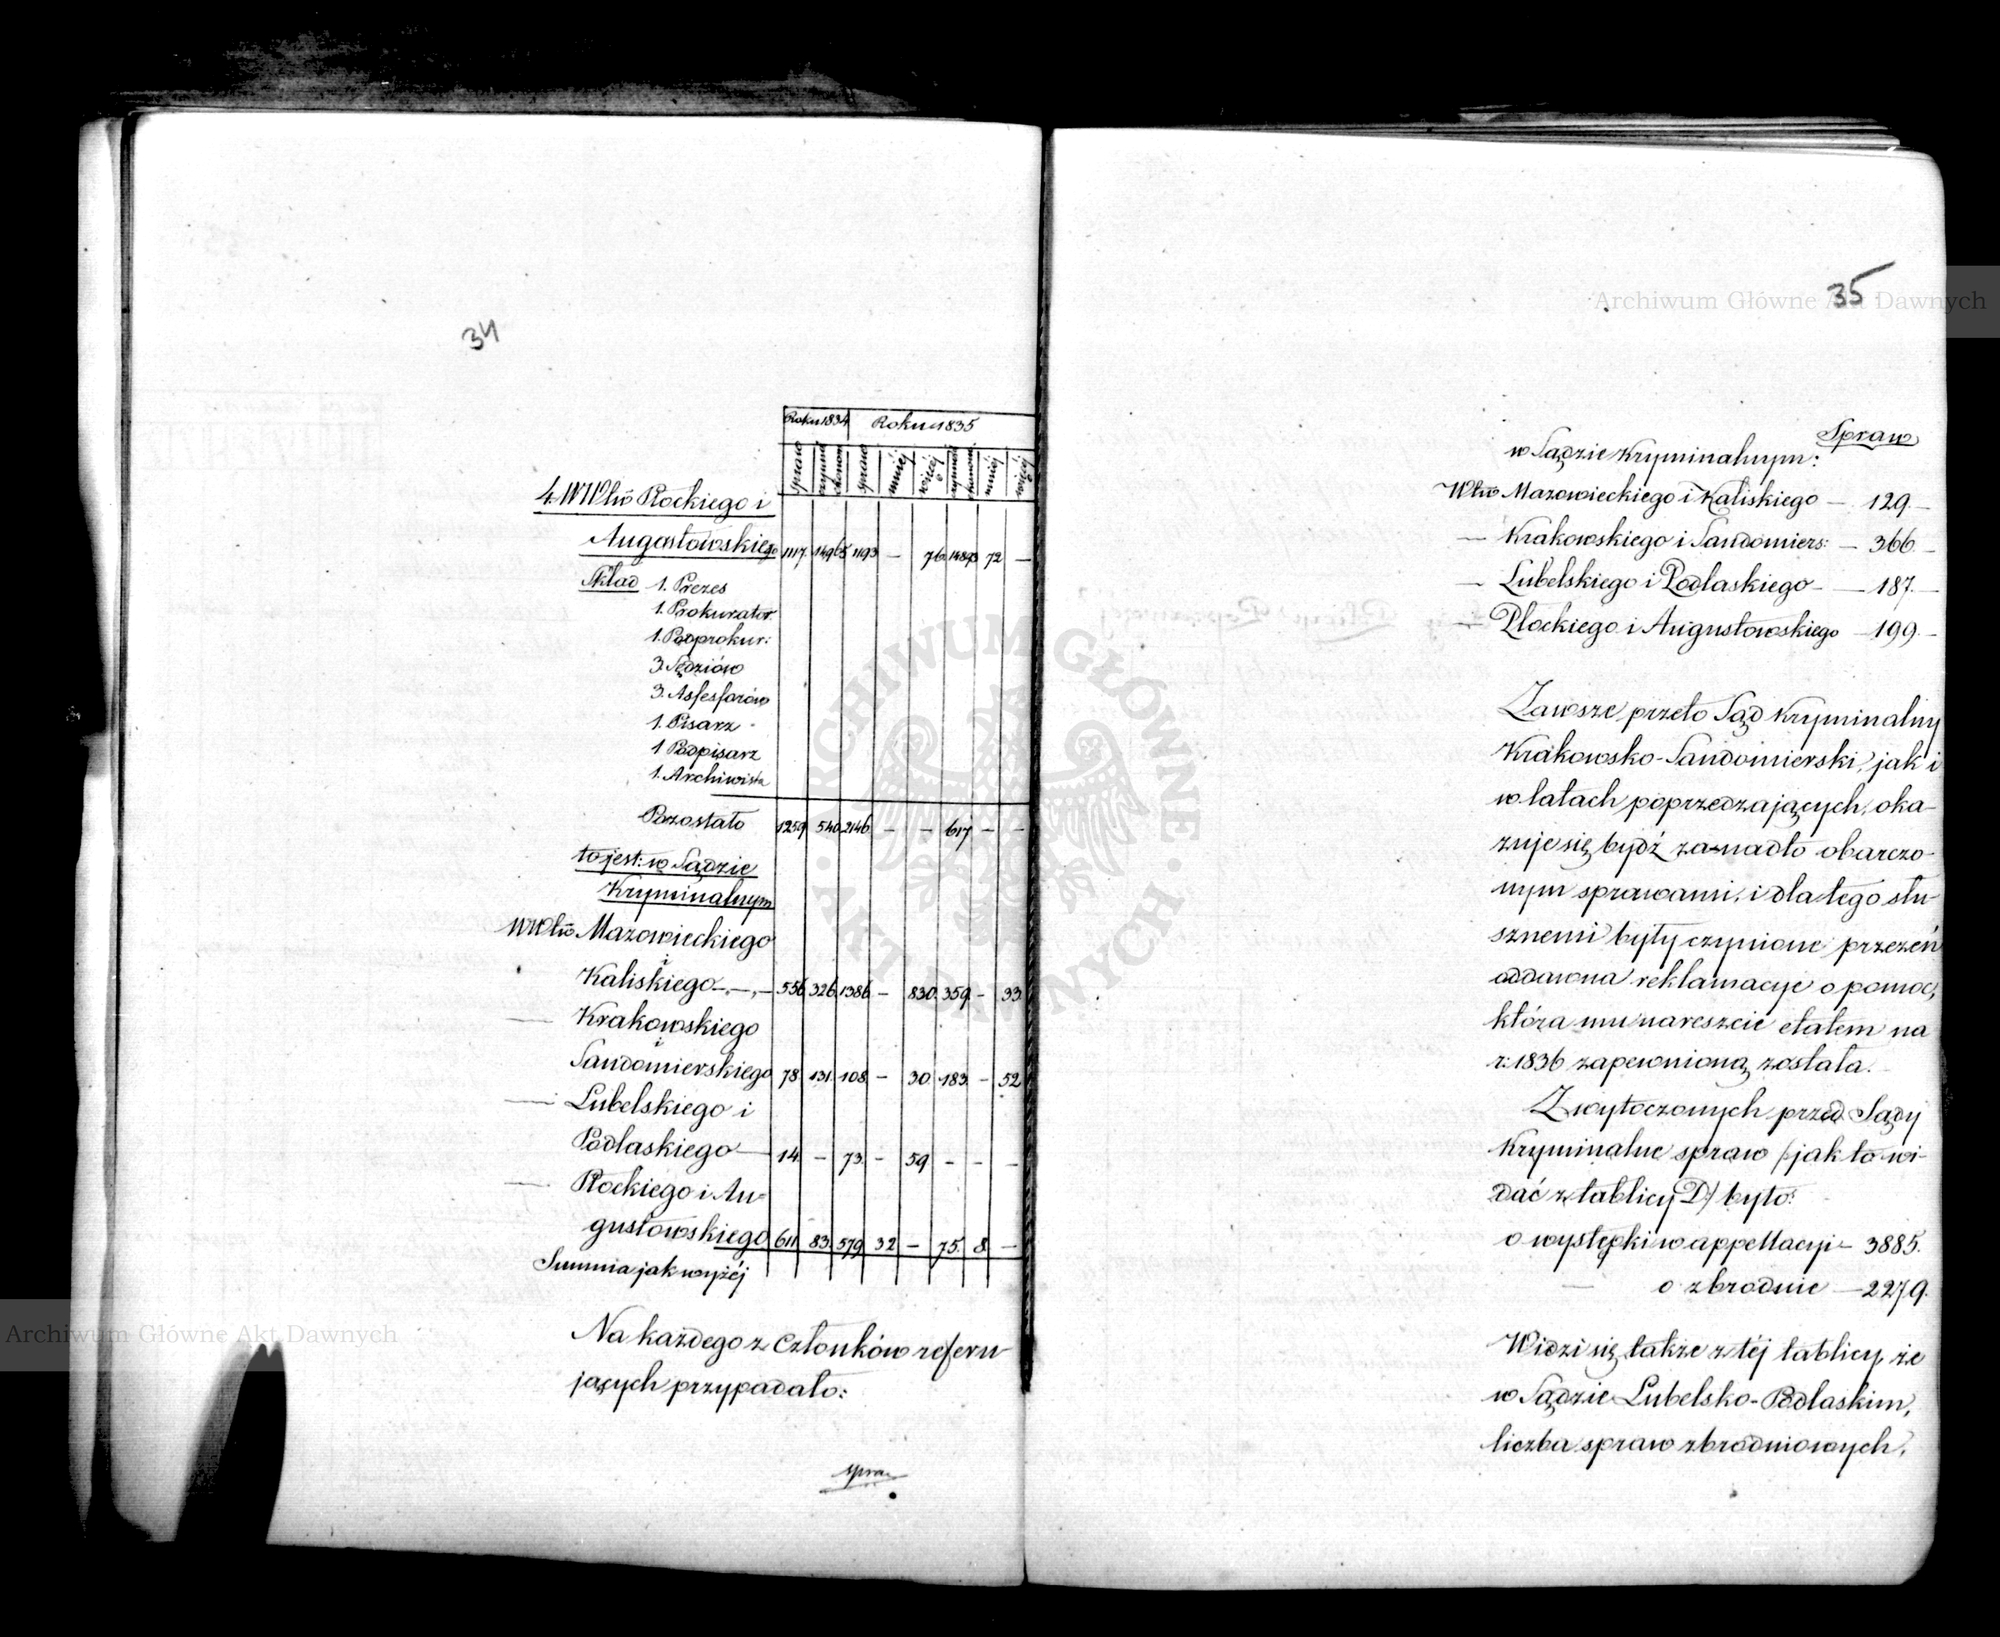 34
Roku 1834 Roku 1835
spraw czynno: spraw mniéj więcéj mniéj więcéj
4. WWdw Płockiego i
Augustowskiego 1117. 1193 — 76. 72 —
Skład 1. Prezes
1. Prokurator.
1. Podprokur:
3. Sędziów
3. Asfesforów
1. Pisarz
1. Podpisarz
1. Archiwista
Pozostało 1259. 540. 2146. — — 617. — —
to jest: w Sądzie
Kryminalnym
WWdw Mazowieckiego
i
Kaliskiego — 556. 326. 1386. — 830. 359. — 33.
— Krakowskiego
i
Sandomierskiego 78. 131. 108. — 30. 183. — 52
— Lubelskiego i
Podlaskiego — 14. — 73. — 59 — — —
— Płockiego i Au-
gustowskiego 611. 83. 579. 32 — 75. 8. —
Summa jak wyżéj
Na każdego z członków referu-
jących przypadało:
spraw
35
Spraw
w Sądzie Kryminalnym:
Wdw Mazowieckiego i Kaliskiego — 129. —
— Krakowskiego i Sandomiers: — 366. —
— Lubelskiego i Podlaskiego — 187. —
— Płockiego i Augustowskiego — 199. —
Zawsze przeto Sąd Kryminalny
Krakowsko-Sandomierski, jak i
w latach poprzedzających, oka-
zuje się bydź zanadto obarczo-
nym sprawami, i dla tego słu-
sznemi były czynione przezeń
oddawna reklamacye o pomoc,
która mu nareszcie etatem na
r: 1836 zapewnioną została.
Z wytoczonych przed Sądy
Kryminalne spraw /:jak to wi-
dać z tablicy D/ było:
o występki w appellacyi — 3885.
— o zbrodnie — 2279.
Widzi się także z téj tablicy, że
w Sądzie Lubelsko-Podlaskim,
liczba spraw zbrodniowych,
Archiwum Główne Akt Dawnych
Archiwum Główne Akt Dawnych
ARCHIWUM GŁÓWNE AKT DAWNYCH